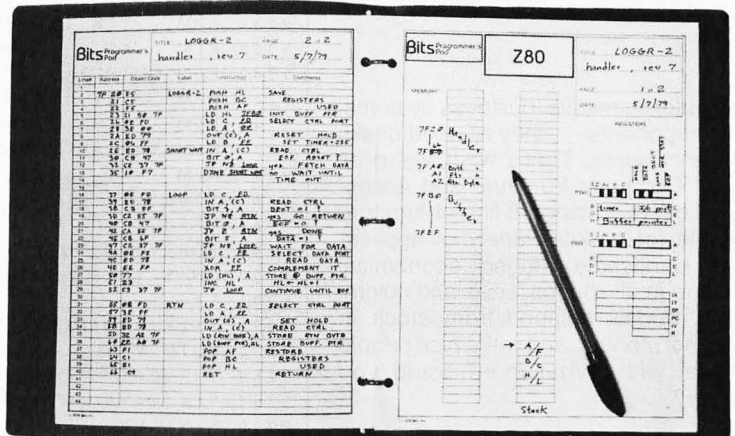 Bits Programmer's Pad
TITLE LOGGR-2 PAGE 2 of 2
handler, rev 7 DATE 5/7/79
Line# Address Object Code Label Instruction Comments
1 7F 20 E5 LOGGR-2 PUSH HL SAVE
2 21 C5 PUSH BC REGISTERS
3 22 F5 PUSH AF USED
4 23 21 B0 7F LD HL 7FB0 INIT BUFF PTR
5 26 0E FD LD C, FD SELECT CTRL PORT
7 2A ED 79 OUT (C), A RESET HOLD
8 2C 06 FF LD B, FF SET TIMER=255
9 2E ED 78 SHORT WAIT IN A, (C) READ CTRL
10 30 CB 47 BIT 0, A EOF RESET ?
11 32 CA 37 7F LOOP yes FETCH DATA
12 35 10 F7 DJNZ SHORT WAIT no WAIT UNTIL
13 TIME OUT
16 37 0E FD LOOP LD C, FD
17 39 ED 78 IN A, (C) READ CTRL
18 BEOT = 1 ?
19 JP NZ RTN yes GO RETURN
20 40 CB 47 BIT 0, A EOF = 0 ?
21 42 CA 55 7F JP Z RTN yes DONE
22 45 CB 6F BIT 5, A DATA = 1
23 LOOP WAIT FOR DATA
24 LD C, FE SELECT DATA PORT
25 4C ED 78 IN A, (C) READ DATA
26 4E EE FF XOR FF COMPLEMENT IT
27 50 77 LD (HL), A STORE @ BUFF. PTR.
28 51 23 INC HL HL ← HL+1
29 52 C3 37 7F JP LOOP CONTINUE UNTIL EOF
31 55 0E FD RTN LD C, FD SELECT CTRL PORT
33 59 ED 79 OUT (C), A SET HOLD
34 5B ED 78 IN A, (C) READ CTRL
35 5D 32 7F STORE RTN BYTE
36 60 22 A0 7F LD (BUFF PTR), HL STORE BUFF. PTR.
37 63 F1 POP AF RESTORE
38 64 C1 POP BC REGISTERS
39 65 E1 POP HL USED
40 66 C9 RET RETURN
Bits Programmer's Pad
Z80
TITLE LOGGR-2
handler, rev 7
PAGE 1 of 2
DATE 5/7/79
MEMORY
REGISTERS
7F20 Handler
7F A0 Buff.
A1 Ptr.
A2 Rtn Byte
7F B0 Buffer
7FEF
timer
Buffer pointer
→ A/F
B/C
H/L
Stack